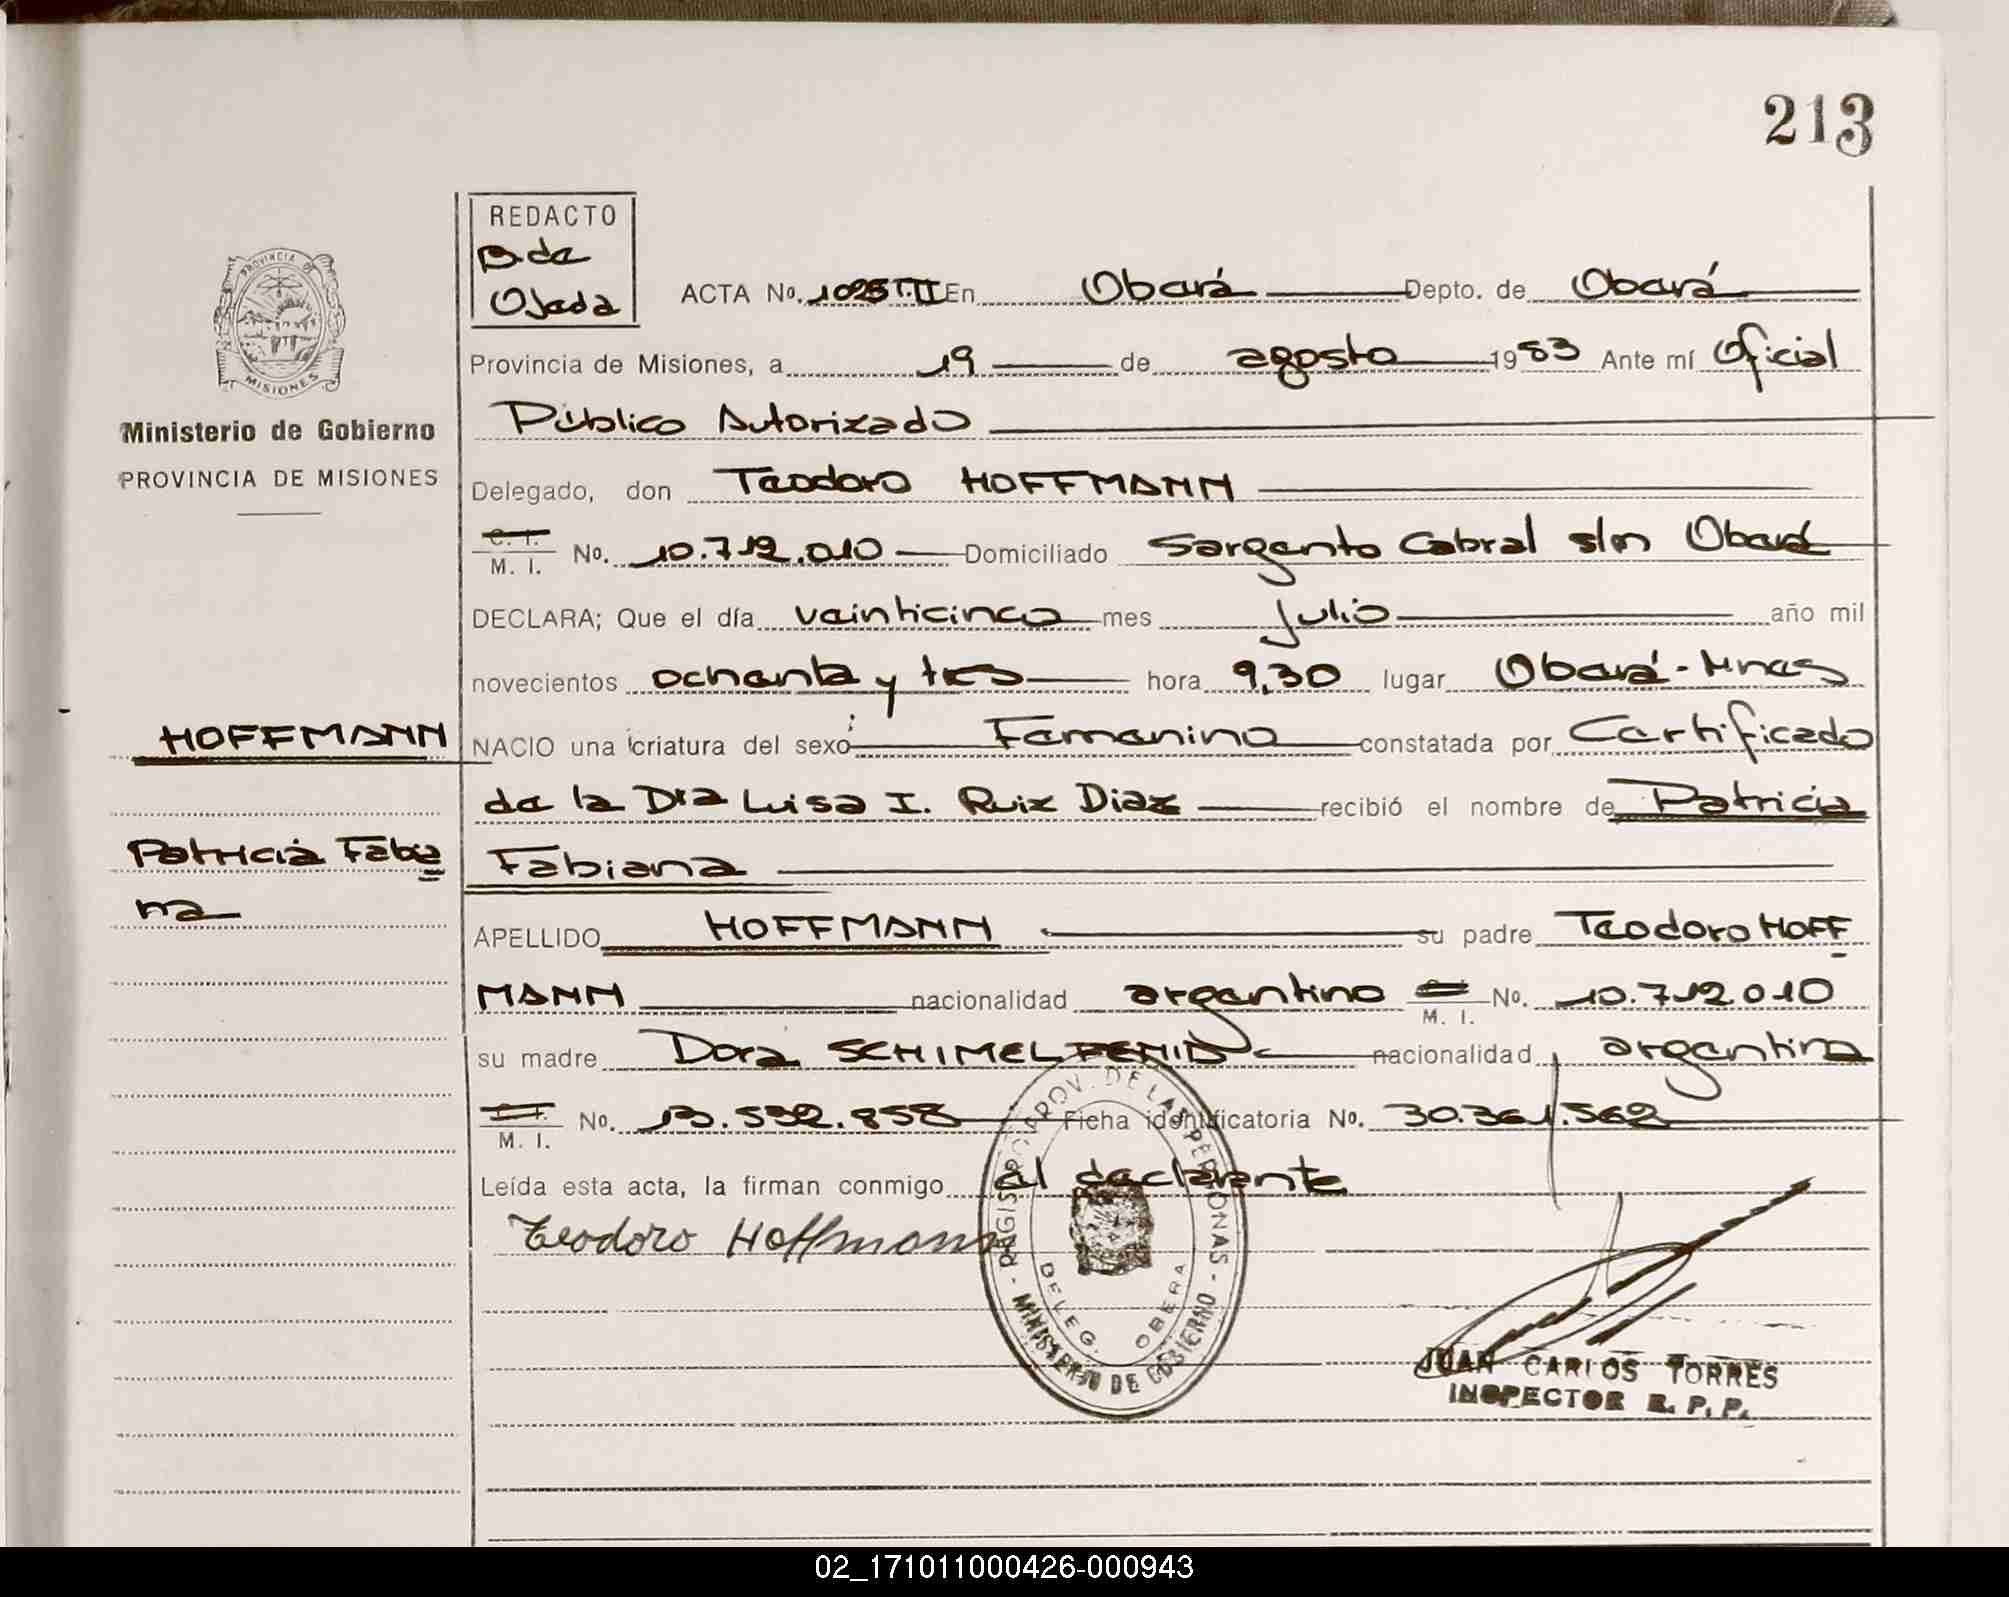 213
REDACTO
B. de
Ojeda
PROVINCIA DE
MISIONES
Ministerio de Gobierno
PROVINCIA DE MISIONES
ACTA No. 1025 T.II En Oberá Depto. de Oberá
Provincia de Misiones, a 19 de agosto 1983 Ante mí Oficial
Público Autorizado
Delegado, don Teodoro HOFFMANN
C. I.
M. I. No. 10.712.010 Domiciliado Sargento Cabral s/n Oberá
DECLARA; Que el día veinticinco mes julio año mil
novecientos ochenta y tres hora 9,30 lugar Oberá - Mnes
HOFFMANN
NACIO una criatura del sexo Femenino constatada por Certificado
de la Dra Luisa I. Ruiz Diaz recibió el nombre de Patricia
Patricia Fabia
na
Fabiana
APELLIDO HOFFMANN su padre Teodoro HOFF
MANN nacionalidad argentino M. I. No. 10.712.010
su madre Dora SCHIMELFENID nacionalidad argentina
C. I.
M. I. No. 13.532.858 Ficha identificatoria No. 30.361.562
Leída esta acta, la firman conmigo el declarante
Teodoro Hoffmann
REGISTRO PROV. DE LAS PERSONAS
DELEG. OBERA
MINISTERIO DE GOBIERNO
JUAN CARLOS TORRES
INSPECTOR R. P. P.
02_171011000426-000943